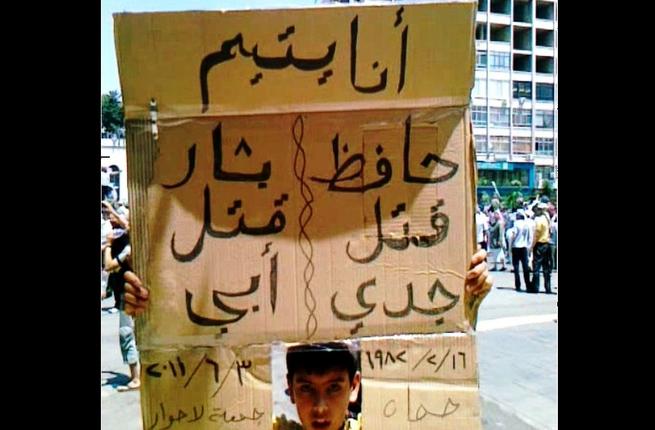 أنا يتيم
حافظ
قتل
جدي
بشار
قتل
أبي
١٩٨٢/٢/١٦
حماه
٢٠١١/٦/٣
جمعة لا حوار